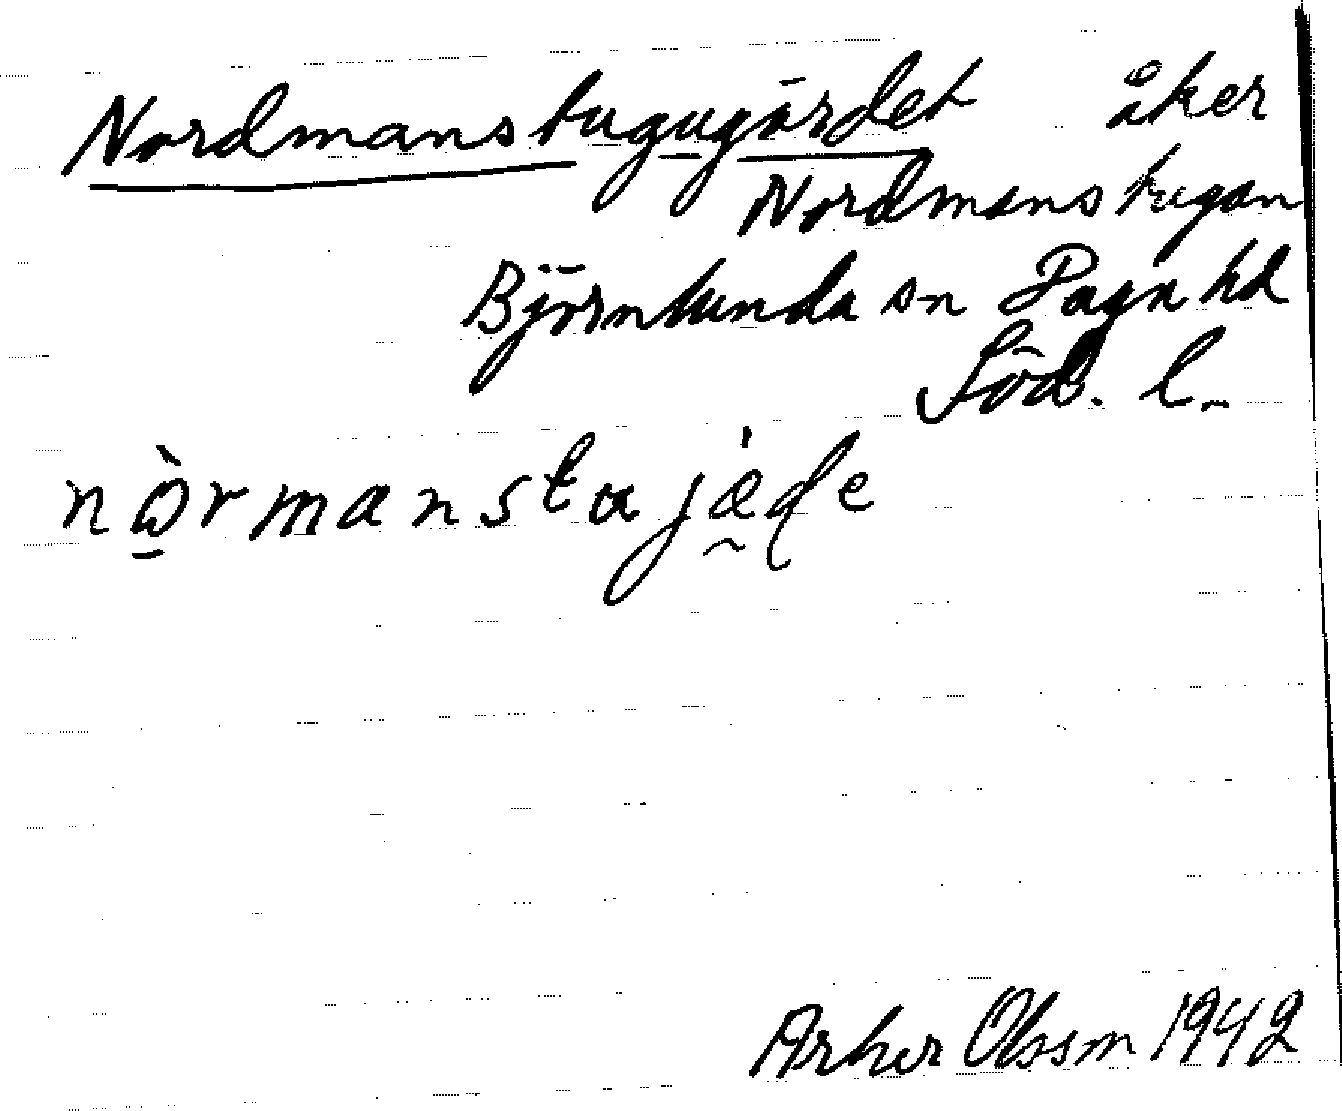 Nordmanstugugärdet åker
Nordmanstugan
Björnlunda sn Daga hd
Söd. l.
nòrmanstujæ̀ḍe
Arthur Olsson 1942